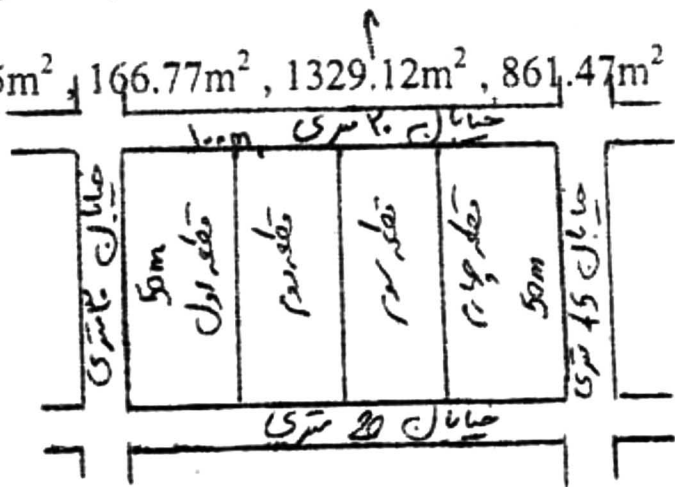 5m² , 166.77m² , 1329.12m² , 861.47m²
خیابان ۲۰ متری
۱۰۰m
خیابان ۲۰ متری
50m
قطعه اول
قطعه دوم
قطعه سوم
قطعه چهارم
50m
خیابان 45 متری
خیابان 20 متری